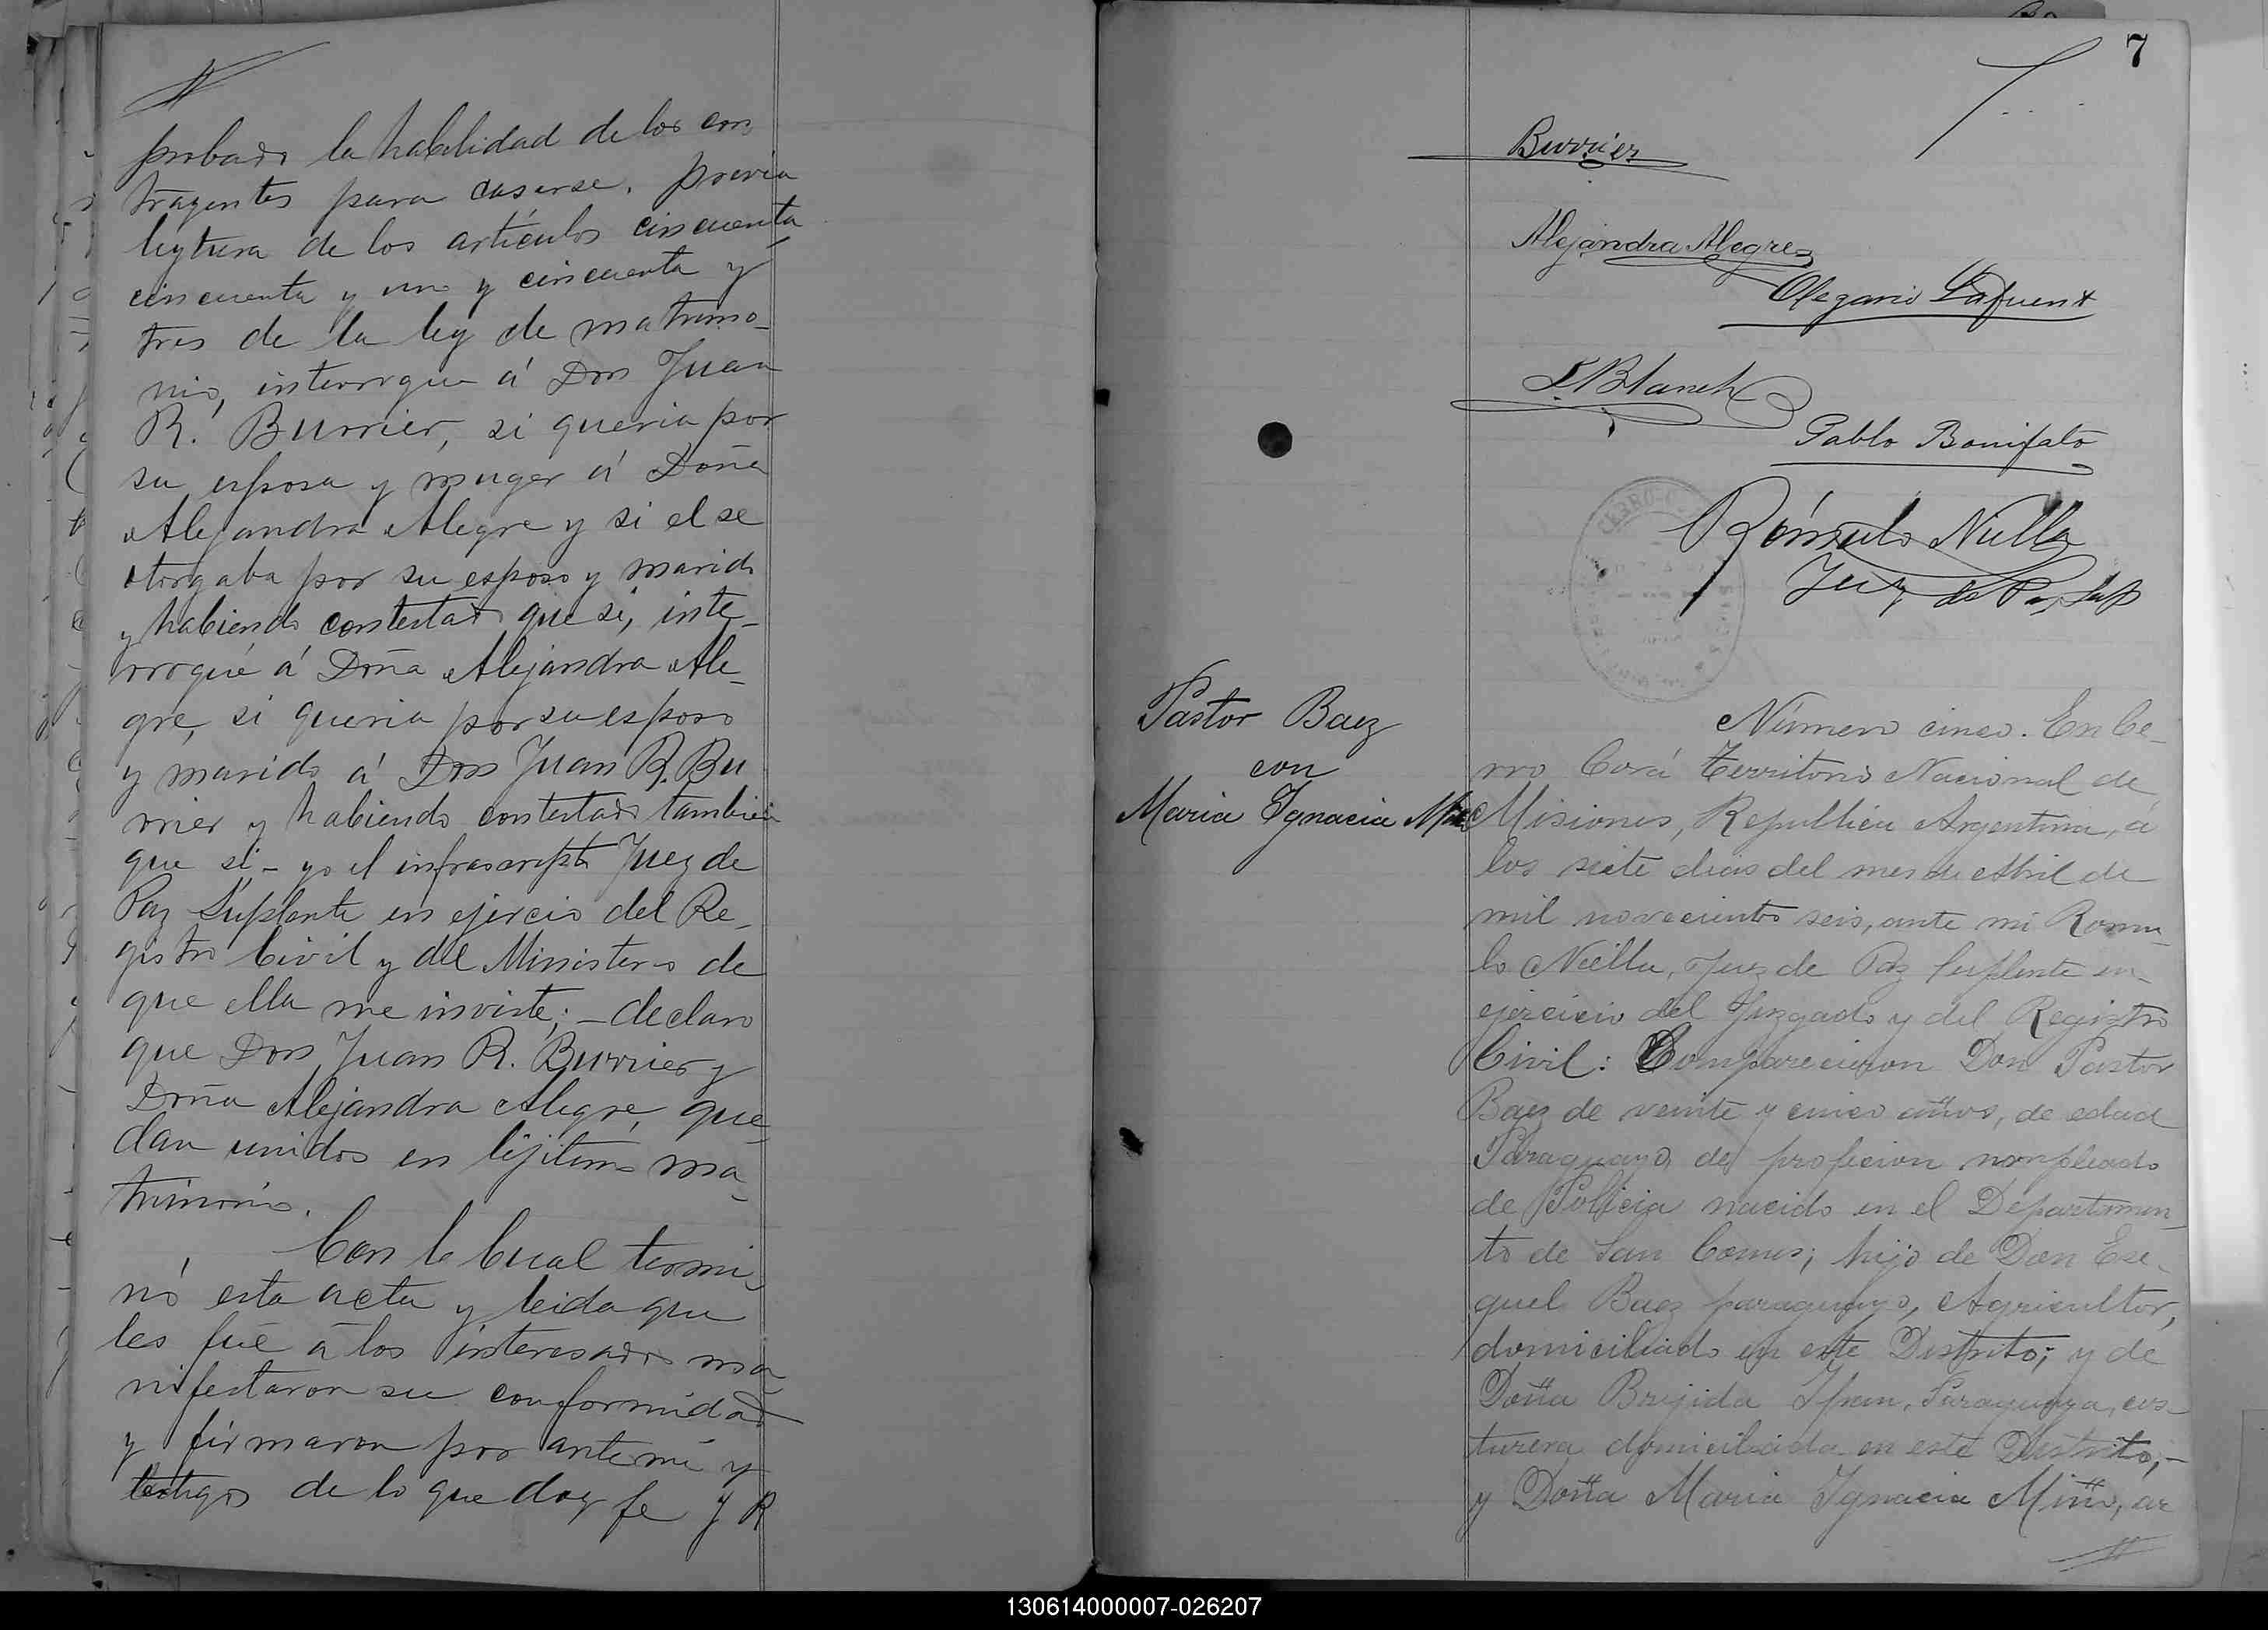 probado la habilidad de los con
trayentes para casarse, previa
leytura de los artículos cincuenta
cincuenta y uno y cincuenta y
tres de la ley de matrimo-
nio, interrogue á Don Juan
R. Burrier, si queria por
su esposa y muger á Doña
Alejandra Alegre y si el se
otorgaba por su esposo y marido
y habiendo contestado que si, inte-
rrogué á Doña Alejandra Ale-
gre, si queria por su esposo
y marido á Don Juan R. Bu
rrier y habiendo contestado tambien
que si - yo el infrascripto Juez de
Paz Suplente en ejercio del Re-
gistro Civil y del Ministerio de
que ella me inviste; - declaro
que Don Juan R. Burrier y
Doña Alejandra Alegre, que-
dan unidos en lejitimo ma-
trimonio.
Con lo Cual termi-
nó esta acta y leida que
les fué á los interesados ma-
nifestaron su conformidad
y firmaron por ante mi y
testigos de lo que doy fe J R
7
Burrier
Alejandra Alegre
Olegario Lafuent
Blanch
Pablo Bonifato
Rómulo Niella
Juez de Paz Sup
CERRO-C
Pastor Baez
con
Maria Ignacia
Número cinco. En Ce-
rro Corá Territorio Nacional de
Misiones, Republica Argentina, á
los siete dias del mes de Abril de
mil novecientos seis, ante mi Romu-
lo Niella, Juez de Paz Suplente en
ejercicio del Juzgado y del Registro
Civil: Comparecieron Don Pastor
Baez de veinte y cinco años, de edad
Paraguayo, de profecion
de Policia nacido en el Departamen-
to de San Cosme; hijo de Don Ese-
quel Baez paraguayo, Agricultor,
domiciliado en este Distrito; y de
Doña Brijida Paraguaya, cos-
turera domiciliada en este Distrito, -
y Doña Maria Ignacia Miño, ar
130614000007-026207